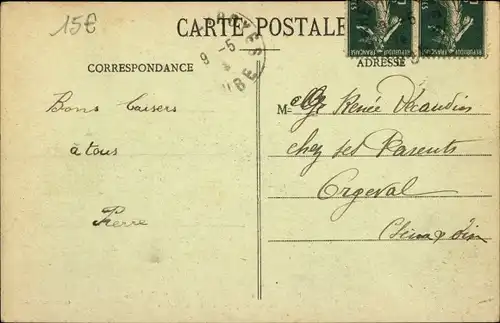 15€
CARTE POSTALE
9 - 5
CORRESPONDANCE
ADRESSE
Bons baisers
à tous
Pierre
Melle Renée Décaudin
chez ses Parents
Orgeval
(Seine & Oise)